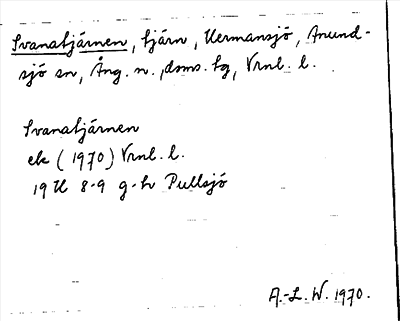 Svanatjärnen, tjärn, Hermansjö, Anund-
sjö sn, Ång. n., dsms. tg, Vrnl. l.
Svanatjärnen
ek (1970) Vrnl. l.
19 H 8-9 g-h Pullsjö
A.-L. W. 1970.